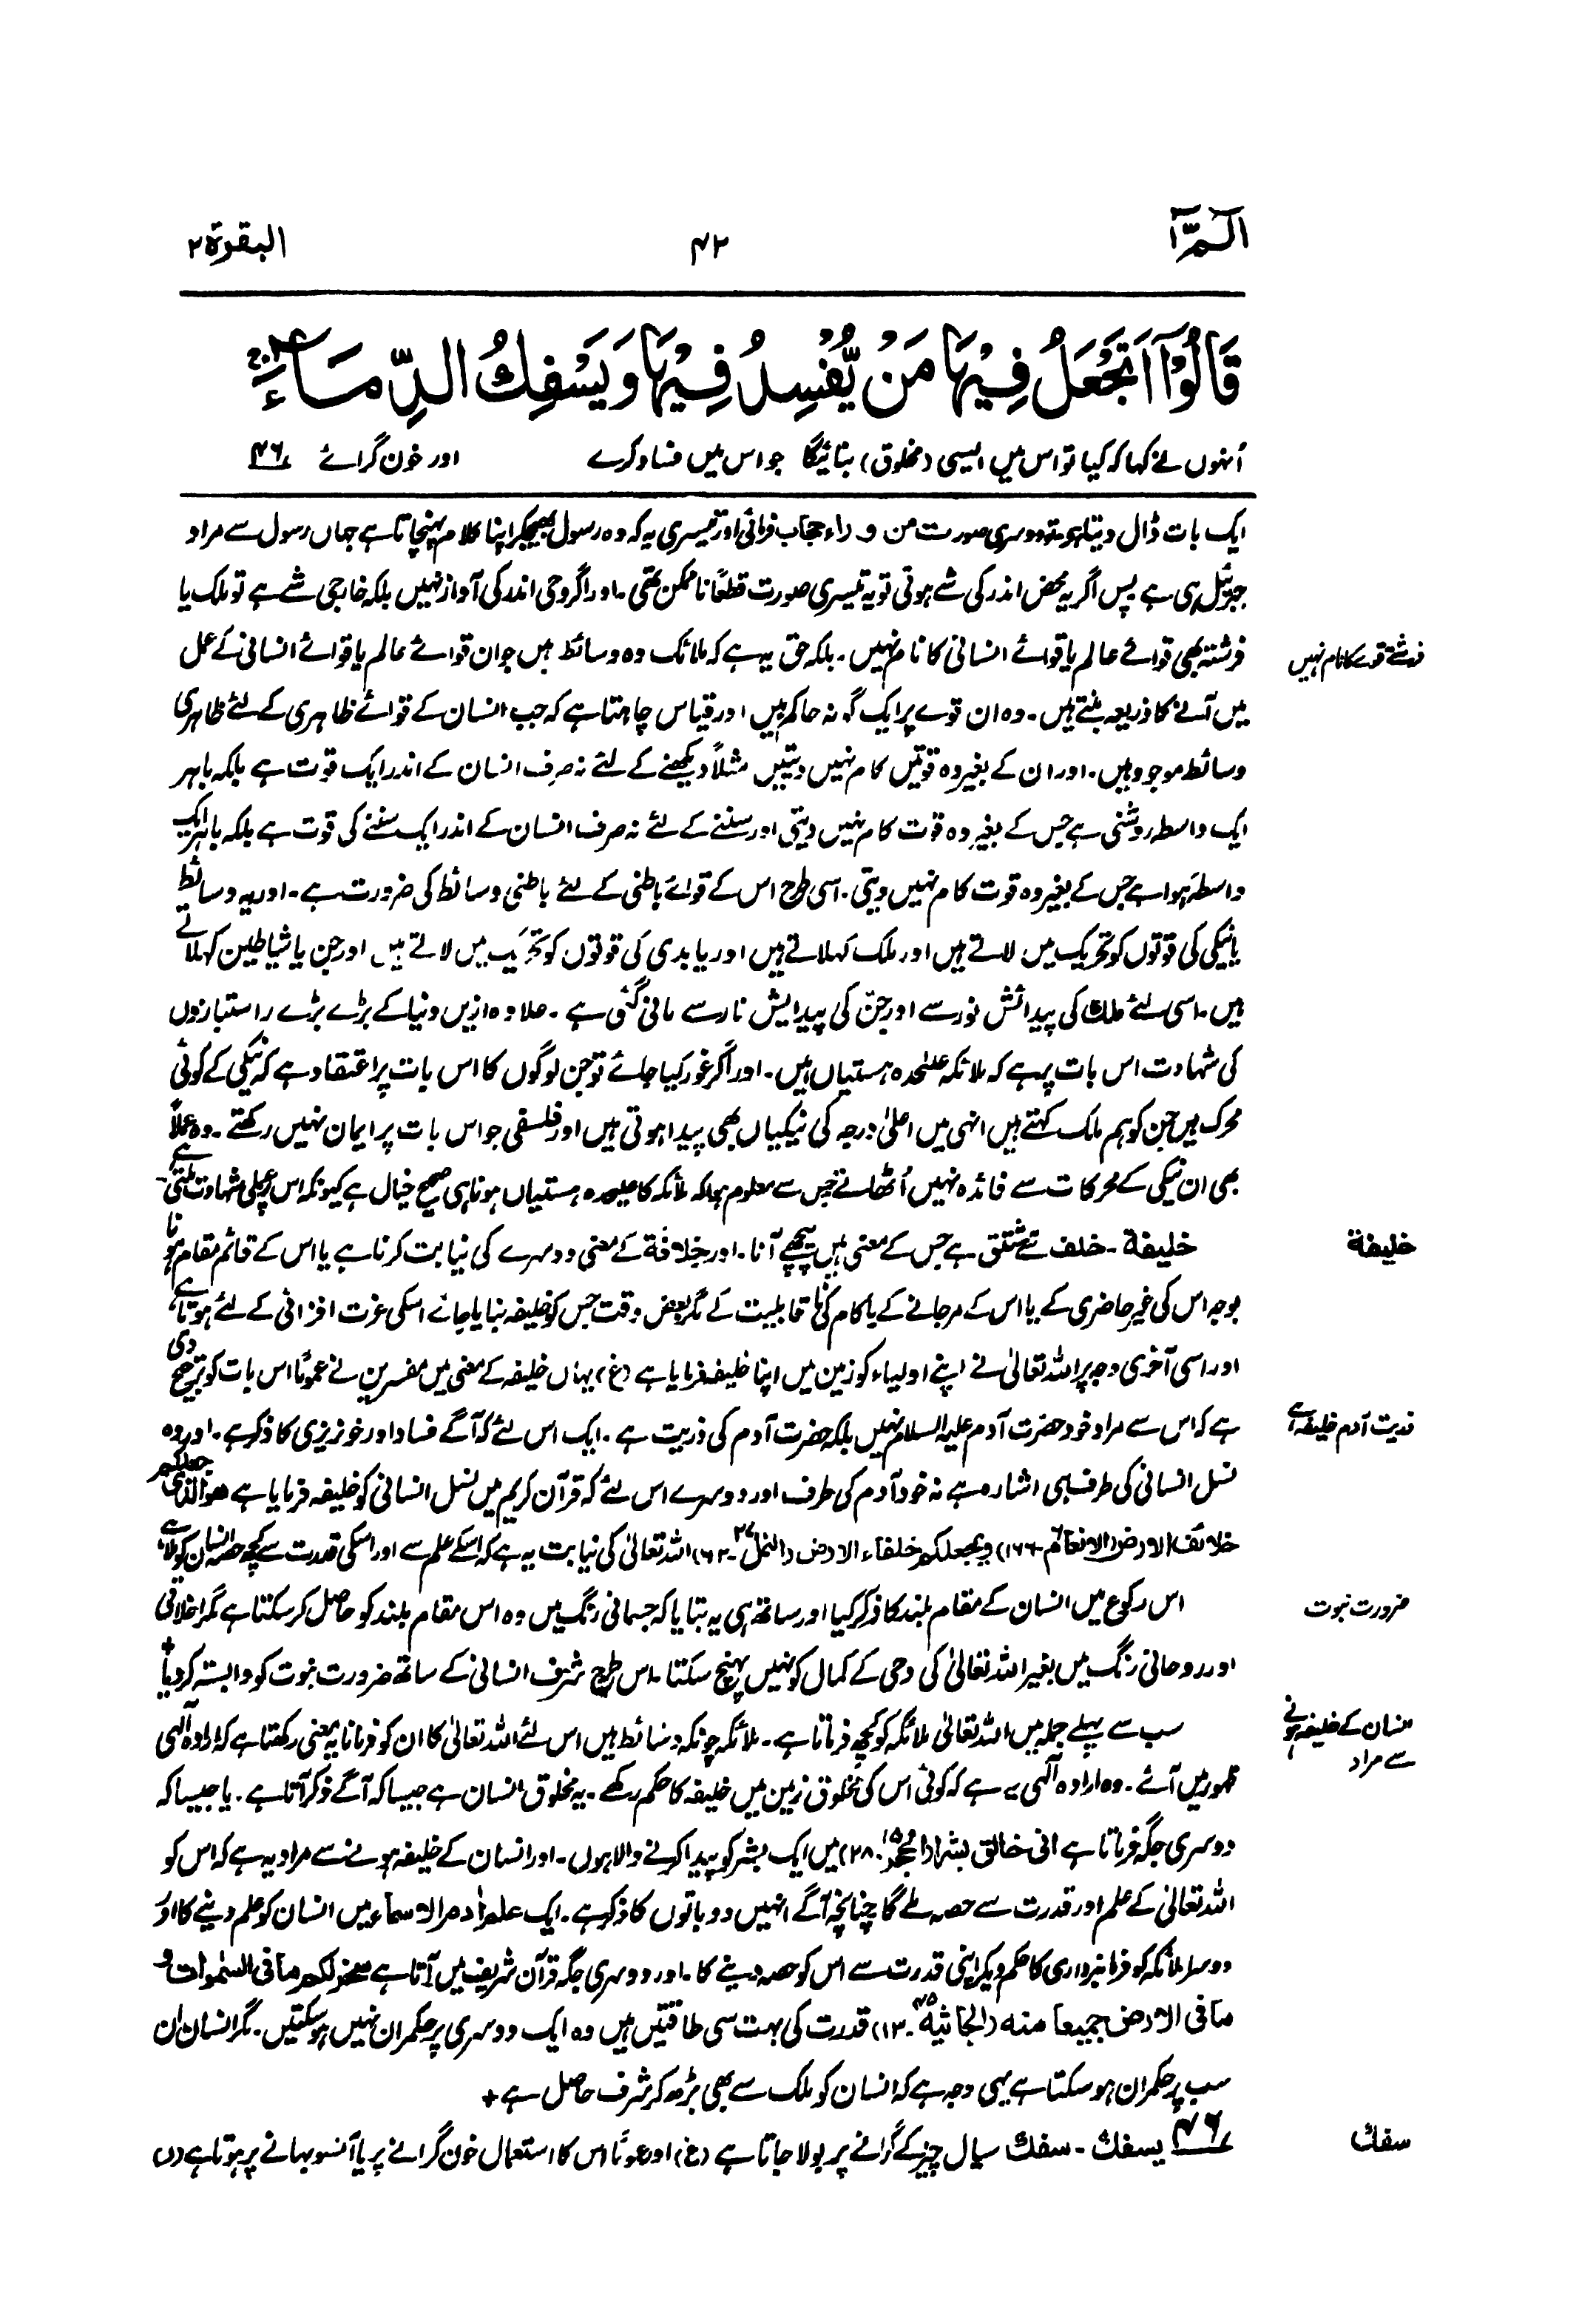 الٓمّٓ ١
٤٢
البقرة ٢
قَالُوْٓا اَتَجْعَلُ فِيْهَا مَنْ يُّفْسِدُ فِيْهَا وَيَسْفِكُ الدِّمَآءَ ۚ
اُنہوں نے کہا کہ کیا تو اس میں ایسی (مخلوق) بنائیگا جو اس میں فساد کرے اور خون گرائے ٤٦
ایک بات ڈال دیتا ہو تو دوسری صورت من وراء حجاب فرمائی اور تیسری یہ کہ وہ رسول بھیجکر اپنا کلام پہنچاتا ہے جہاں رسول سے مراد
جبرئیل ہی ہے پس اگر یہ محض اندر کی شے ہوتی تو یہ تیسری صورت قطعًا ناممکن تھی۔ اور اگر وحی اندر کی آواز نہیں بلکہ خارجی شے ہے تو ملک یا
فرشتہ بھی قوائے عالم یا قوائے انسانی کا نام نہیں۔ بلکہ حق یہ ہے کہ ملائک وہ وسائط ہیں جو ان قوائے عالم یا قوائے انسانی کے عمل
فرشتے قوے کا نام نہیں
میں آنے کا ذریعہ بنتے ہیں۔ وہ ان قوے پر ایک گونہ حاکم ہیں اور قیاس چاہتا ہے کہ جب انسان کے قوائے ظاہری کے لئے ظاہری
وسائط موجود ہیں۔ اور ان کے بغیر وہ قوتیں کام نہیں دیتیں مثلاً دیکھنے کے لئے نہ صرف انسان کے اندر ایک قوت ہے بلکہ باہر
ایک واسطہ روشنی ہے جس کے بغیر وہ قوت کام نہیں دیتی اور سننے کے لئے نہ صرف انسان کے اندر ایک سننے کی قوت ہے بلکہ باہر ایک
واسطہ ہوا ہے جس کے بغیر وہ قوت کام نہیں دیتی۔ اسی طرح اس کے قوائے باطنی کے لئے باطنی وسائط کی ضرورت ہے۔ اور یہ وسائط
یا نیکی کی قوتوں کو تحریک میں لاتے ہیں اور ملک کہلاتے ہیں اور یا بدی کی قوتوں کو تحریک میں لاتے ہیں اور جن یا شیاطین کہلاتے
ہیں۔ اسی لئے ملک کی پیدائش نور سے اور جنّ کی پیدایش نار سے مانی گئی ہے۔ علاوہ ازیں دنیا کے بڑے بڑے راستبازوں
کی شہادت اس بات پر ہے کہ ملائکہ علیٰحدہ ہستیاں ہیں۔ اور اگر غور کیا جائے تو جن لوگوں کا اس بات پر اعتقاد ہے کہ نیکی کے کوئی
محرک ہیں جن کو ہم ملک کہتے ہیں انہی میں اعلیٰ درجہ کی نیکیاں بھی پیدا ہوتی ہیں اور فلسفی جو اس بات پر ایمان نہیں رکھتے۔ وہ عملاً
بھی ان نیکی کے محرکات سے فائدہ نہیں اُٹھاتے جس سے معلوم ہوا کہ ملائکہ کا علیحدہ ہستیاں ہونا ہی صحیح خیال ہے کیونکہ اس پر عملی شہادت ملتی ہے
خلیفة
خلیفة۔ خلف سے مشتق ہے جس کے معنی ہیں پیچھے آنا۔ اور خلافة کے معنی دوسرے کی نیابت کرنا ہے یا اس کے قائم مقام ہونا
بوجہ اس کی غیر حاضری کے یا اس کے مر جانے کے یا کام کی نا قابلیت کے مگر بعض وقت جس کو خلیفہ بنایا جائے اسکی عزت افزائی کے لئے ہوتا ہے
اور اسی آخری وجہ پر اللہ تعالیٰ نے اپنے اولیاء کو زمین میں اپنا خلیفہ فرمایا ہے (غ) یہاں خلیفہ کے معنی میں مفسرین نے عمومًا اس بات کو ترجیح دی
ہے کہ اس سے مراد خود حضرت آدم علیہ السلام نہیں بلکہ حضرت آدم کی ذریت ہے۔ ایک اس لئے کہ آگے فساد اور خونریزی کا ذکر ہے۔ اور وہ
ذریت آدم خلیفہ ہے
نسل انسانی کی طرف ہی اشارہ ہے نہ خود آدم کی طرف اور دوسرے اس لئے کہ قرآن کریم میں نسل انسانی کو خلیفہ فرمایا ہے ھوالذی جعلکم
خلائف الارض (الانعام ٦-١٦٦) ویجعلکم خلفاء الارض (النمل ٢٧-٦٢) اللہ تعالیٰ کی نیابت یہ ہے کہ اسکے علم سے اور اسکی قدرت سے کچھ حصہ انسان کو ملا ہے
ضرورت نبوت
اس رکوع میں انسان کے مقام بلند کا ذکر کیا اور ساتھ ہی یہ بتایا کہ جسمانی رنگ میں وہ اس مقام بلند کو حاصل کر سکتا ہے مگر اخلاقی
اور روحانی رنگ میں بغیر اللہ تعالیٰ کی وحی کے کمال کو نہیں پہنچ سکتا۔ اس طرح شرف انسانی کے ساتھ ضرورت نبوت کو وابستہ کر دیا+
انسان کے خلیفہ ہونے سے مراد
سب سے پہلے جملہ میں اللہ تعالیٰ ملائکہ کو کچھ فرماتا ہے۔ ملائکہ چونکہ وسائط ہیں اس لئے اللہ تعالیٰ کا ان کو فرمانا یہ معنی رکھتا ہے کہ ارادہ الٰہی
ظہور میں آئے۔ وہ ارادہ الٰہی یہ ہے کہ کوئی اس کی مخلوق زمین میں خلیفہ کا حکم رکھے۔ یہ مخلوق انسان ہے جیسا کہ آگے ذکر آتا ہے۔ یا جیسا کہ
دوسری جگہ فرماتا ہے انی خالق بشرا (الحجر ١٥-٢٨) میں ایک بشر کو پیدا کرنے والا ہوں۔ اور انسان کے خلیفہ ہونے سے مراد یہ ہے کہ اس کو
اللہ تعالیٰ کے علم اور قدرت سے حصہ ملے گا چنانچہ آگے انہیں دو باتوں کا ذکر ہے۔ ایک علم اٰدم الاسماء میں انسان کو علم دینے کا اور
دوسرا ملائکہ کو فرمانبرداری کا حکم دیکر اپنی قدرت سے اس کو حصہ دینے کا۔ اور دوسری جگہ قرآن شریف میں آتا ہے سخر لکم ما فی السمٰوات و
ما فی الارض جمیعا منه (الجاثیة ٤٥-١٣) قدرت کی بہت سی طاقتیں ہیں وہ ایک دوسری پر حکمران نہیں ہو سکتیں۔ مگر انسان ان
سب پر حکمران ہو سکتا ہے یہی وجہ ہے کہ انسان کو ملک سے بھی بڑھ کر شرف حاصل ہے+
سفك
٤٦ یسفك۔ سفك سیال چیز کے گرانے پر بولا جاتا ہے (غ) اور عمومًا اس کا استعمال خون گرانے پر یا آنسو بہانے پر ہوتا ہے (ن)